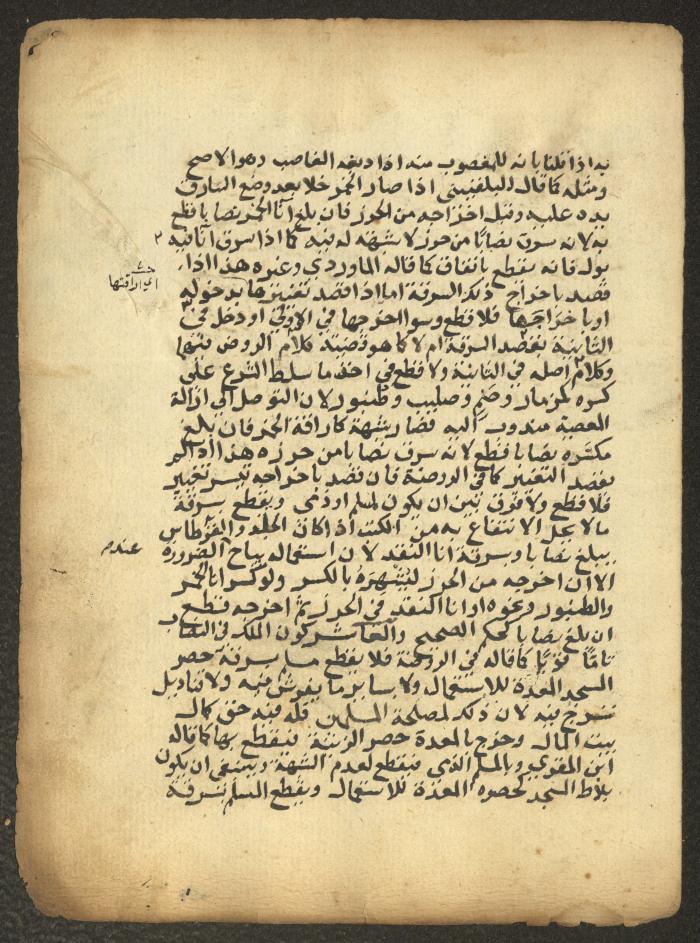 به اذا قلنا بانه للمغصوب منه اذا دبغه الغاصب وهو الاصح
ومثله كما قاله البلقيني اذا صار الخمر خلا بعد وضع السارق
يده عليه وقبل اخراجه من الحرز فان بلغ انا الخمر نصابا قطع
به لانه سرق نصابا من حرز لا شبهة له فيه كما اذا سرق انا فيه
بول فانه يقطع باتفاق كما قاله الماوردي وغيره هذا اذا
قصد باخراج ذلك السرقة اما اذا قصد تغييرها بدخوله
او باخراجها فلا قطع وسوا اخرجها في الاولى او دخل في
الثانية بقصد السرقة ام لا كما هو قضية كلام الروض فيهما
وكلام اصله في الثانية ولا قطع في اخذ ما سلط الشرع على
كسره كمزمار وصنم وصليب وطنبور لان التوصل الى ازالة
المعصية مندوب اليه فصار شبهة كاراقة الخمر فان بلغ
مكسره نصابا قطع لانه سرق نصابا من حرزه هذا اذا لم
يقصد التغيير كما في الروضة فان قصد باخراجه تيسر تغييره
فلا قطع ولا فرق بين ان يكون لمسلم او ذمي ويقطع بسرقة
ما لا يحل الانتفاع به من الكتب اذا كان الجلد والقرطاس
يبلغ نصابا وبسرقة انا النقد لان استعماله يباح للضرورة
الا ان اخرجه من الحرز ليشهره بالكسر ولو كسر انا الخمر
والطنبور ونحوه او انا النقد في الحرز ثم اخرجه قطع
ان بلغ نصابا كحكم الصحيح والعاشر كون الملك في النصاب
تاما قويا كما قاله في الروضة فلا يقطع مسلم بسرقة حصر
المسجد المعدة للاستعمال ولا سائر ما يفرش فيه ولا قناديل
تسرج فيه لان ذلك لمصلحة المسلمين فله فيه حق كمال
بيت المال وخرج بالمعدة حصر الزينة فيقطع بها كما قاله
ابن المقري وبالمسلم الذمي فيقطع لعدم الشبهة وينبغي ان يكون
بلاط المسجد كحصره المعدة للاستعمال ويقطع المسلم بسرقة
اي اراقتها
عندم